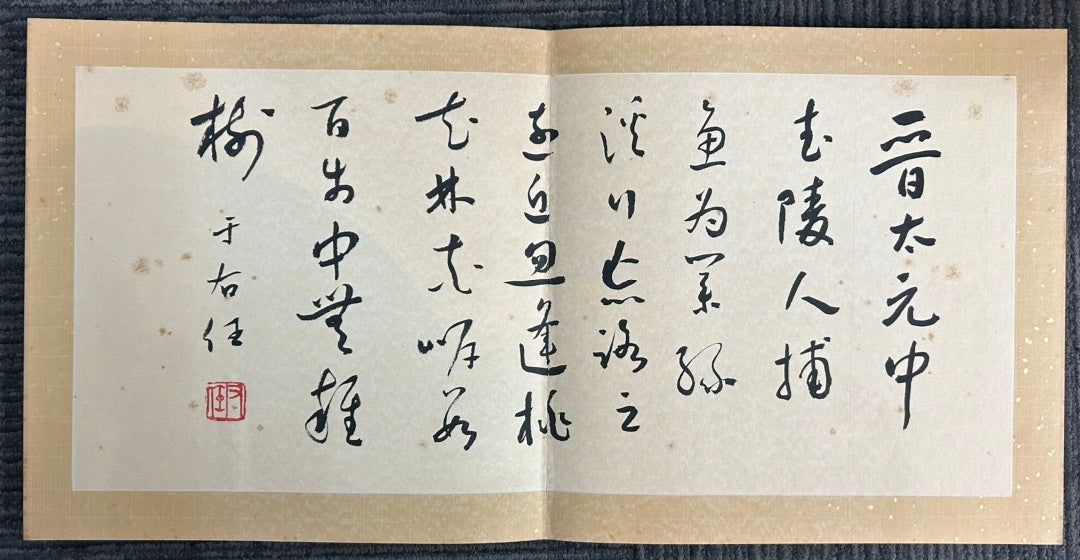 晉太元中
武陵人捕
魚為業緣
溪行忘路之
遠近忽逢桃
花林夾岸數
百步中無雜
樹
于右任
右任